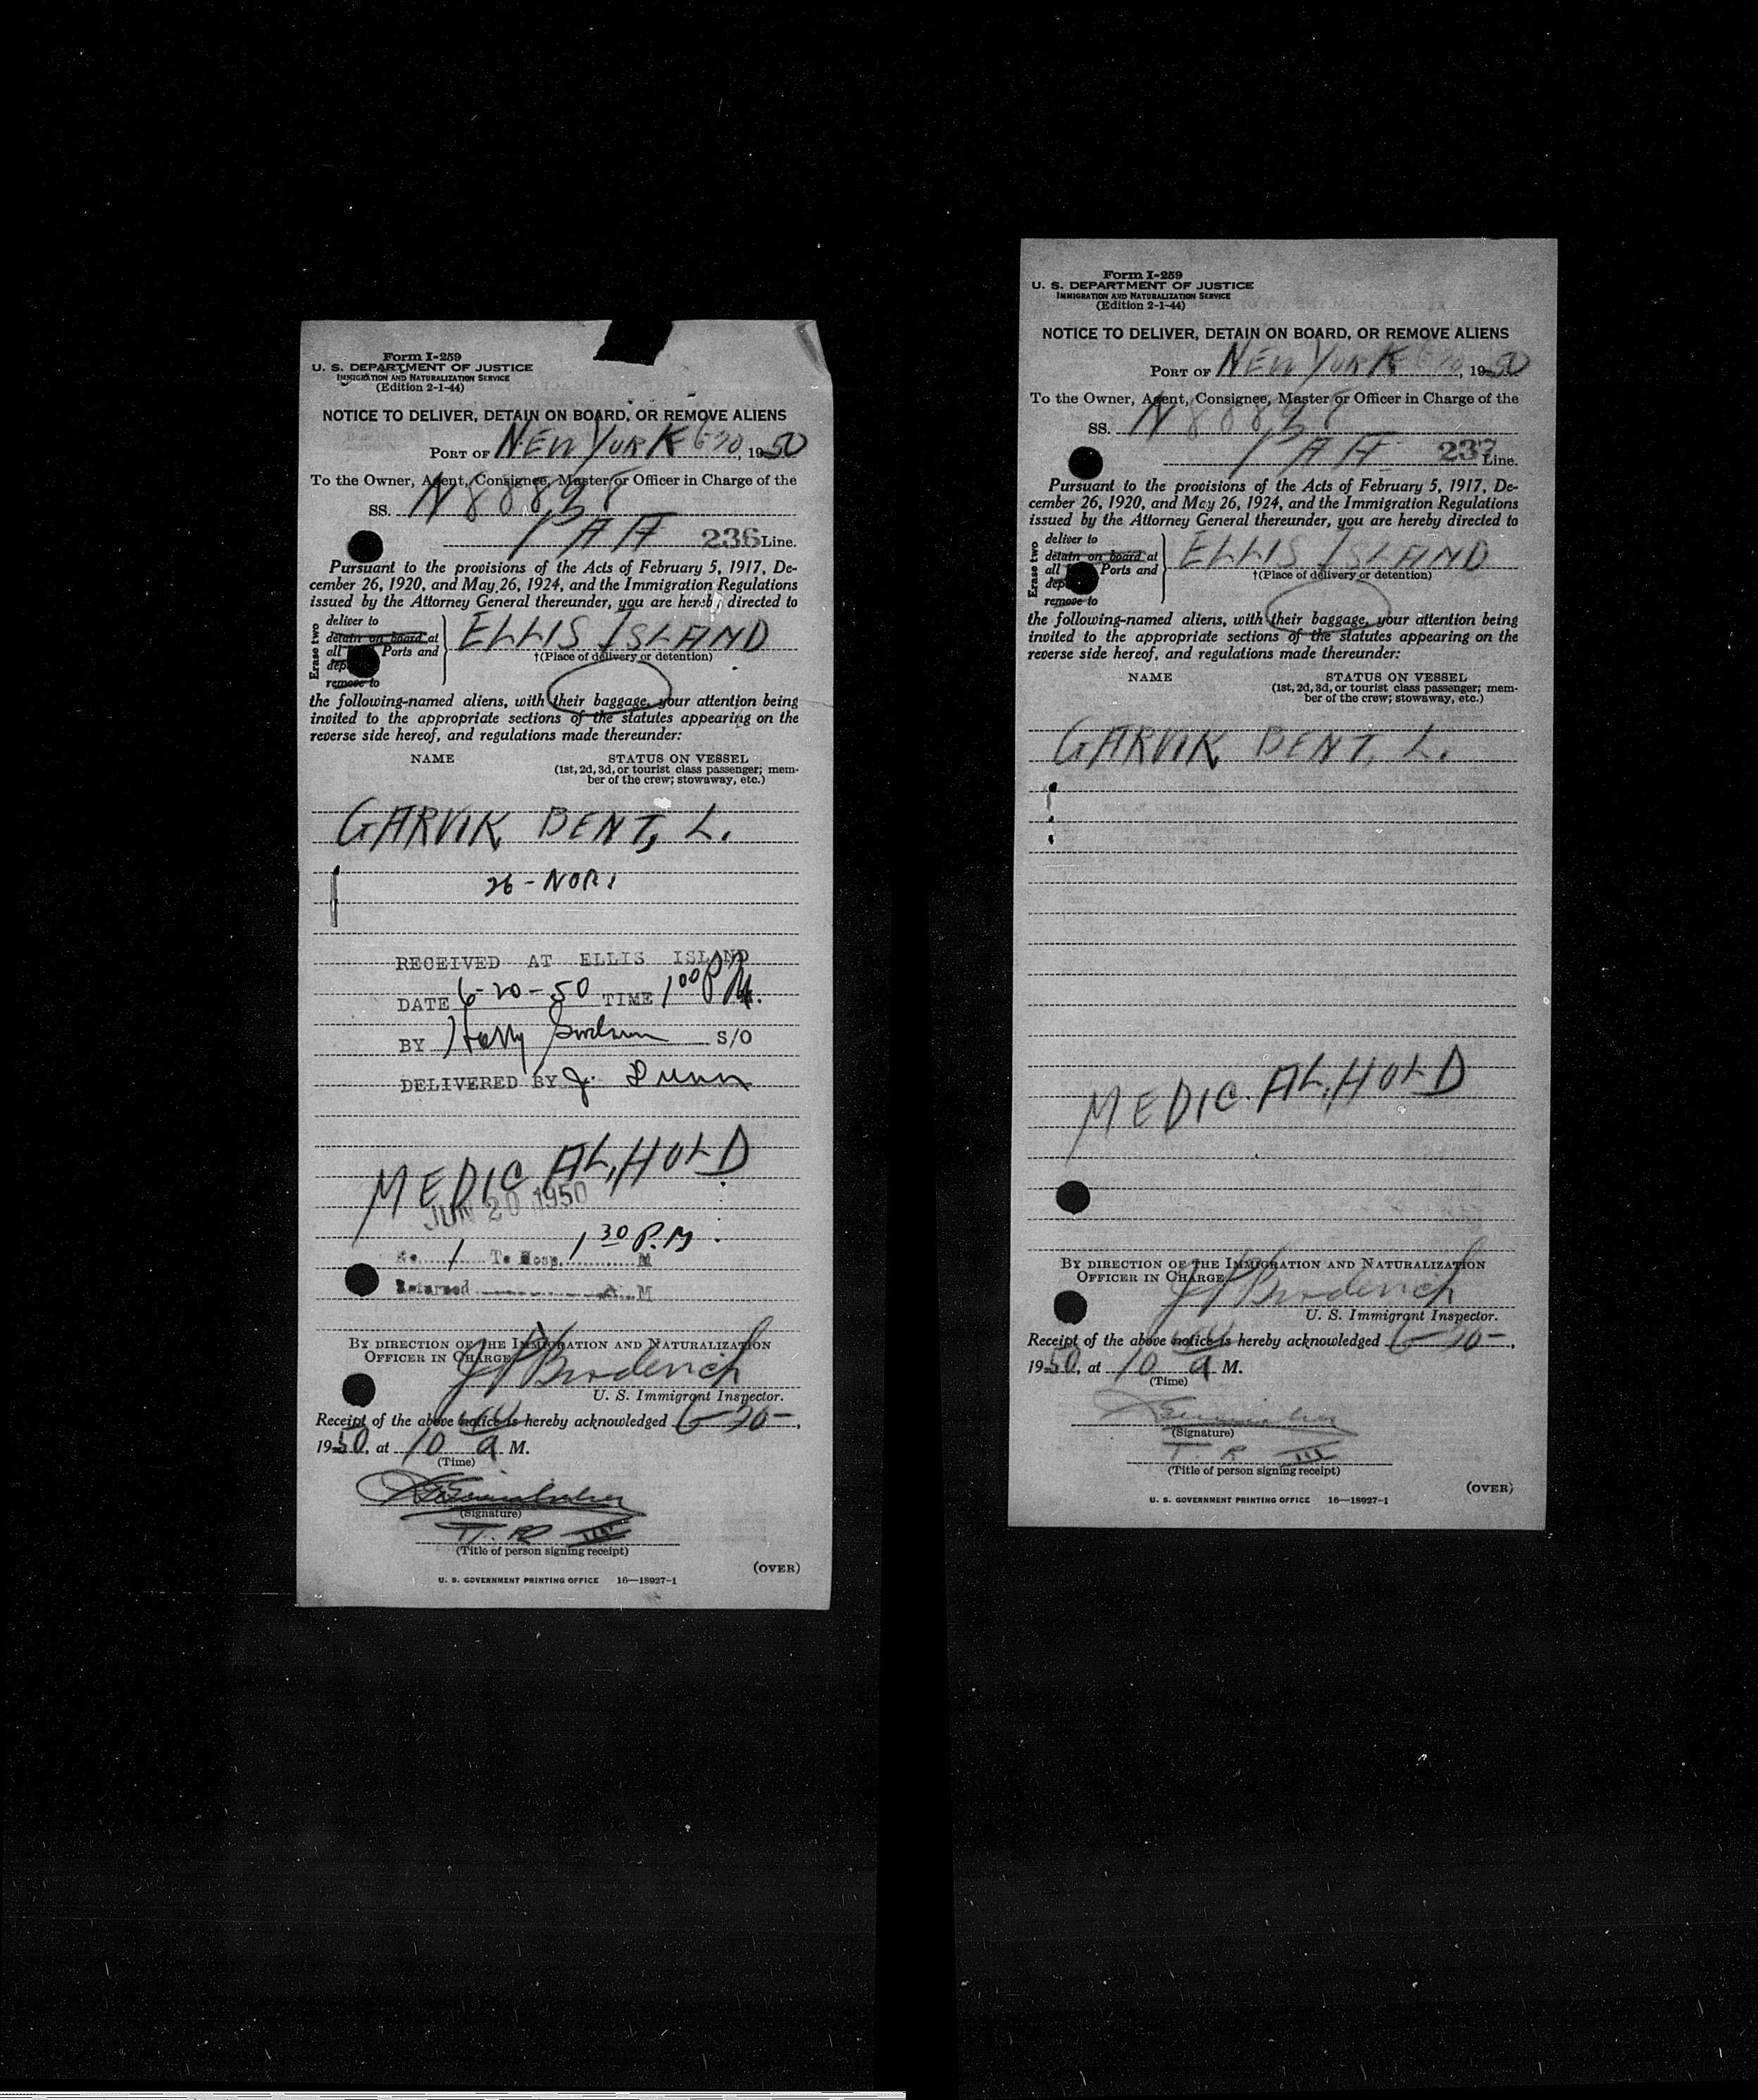 Form I-259
U. S. DEPARTMENT OF JUSTICE
IMMIGRATION AND NATURALIZATION SERVICE
(Edition 2-1-44)
NOTICE TO DELIVER, DETAIN ON BOARD, OR REMOVE ALIENS
PORT OF NEW YORK 6-20, 1950
To the Owner, Agent, Consignee, Master or Officer in Charge of the
SS. N 88838
PAA 236 Line.
Pursuant to the provisions of the Acts of February 5, 1917, De-
cember 26, 1920, and May 26, 1924, and the Immigration Regulations
issued by the Attorney General thereunder, you are hereby directed to
Erase two
deliver to
detain on board at
all Ports and
dep
remove to
ELLIS ISLAND
†(Place of delivery or detention)
the following-named aliens, with their baggage, your attention being
invited to the appropriate sections of the statutes appearing on the
reverse side hereof, and regulations made thereunder:
NAME STATUS ON VESSEL
(1st, 2d, 3d, or tourist class passenger; mem-
ber of the crew; stowaway, etc.)
GARVIK BENT, L.
26 - NOR.
RECEIVED AT ELLIS ISLAND
DATE 6-20-50 TIME 1 00 PM.
BY Harry S/O
DELIVERED BY J. Dunn
MEDICAL, HOLD
JUN 20 1950
No. 1 To Hosp. 1 30 P.M. M
Returned A M
BY DIRECTION OF THE IMMIGRATION AND NATURALIZATION
OFFICER IN CHARGE. J Broderick
U. S. Immigrant Inspector.
Receipt of the above notice is hereby acknowledged 6-20-,
1950, at 10 A M.
(Time)
(Signature)
T. R III
(Title of person signing receipt)
(OVER)
U. S. GOVERNMENT PRINTING OFFICE 16—18927-1
Form I-259
U. S. DEPARTMENT OF JUSTICE
IMMIGRATION AND NATURALIZATION SERVICE
(Edition 2-1-44)
NOTICE TO DELIVER, DETAIN ON BOARD, OR REMOVE ALIENS
PORT OF NEW YORK 6-20, 1950
To the Owner, Agent, Consignee, Master or Officer in Charge of the
SS. N 88838
PAA 237 Line.
Pursuant to the provisions of the Acts of February 5, 1917, De-
cember 26, 1920, and May 26, 1924, and the Immigration Regulations
issued by the Attorney General thereunder, you are hereby directed to
Erase two
deliver to
detain on board at
all Ports and
dep
remove to
ELLIS ISLAND
†(Place of delivery or detention)
the following-named aliens, with their baggage, your attention being
invited to the appropriate sections of the statutes appearing on the
reverse side hereof, and regulations made thereunder:
NAME STATUS ON VESSEL
(1st, 2d, 3d, or tourist class passenger; mem-
ber of the crew; stowaway, etc.)
GARVIK BENT, L.
MEDICAL, HOLD
BY DIRECTION OF THE IMMIGRATION AND NATURALIZATION
OFFICER IN CHARGE. J Broderick
U. S. Immigrant Inspector.
Receipt of the above notice is hereby acknowledged 6-20-,
1950, at 10 A M.
(Time)
(Signature)
T R III
(Title of person signing receipt)
(OVER)
U. S. GOVERNMENT PRINTING OFFICE 16—18927-1